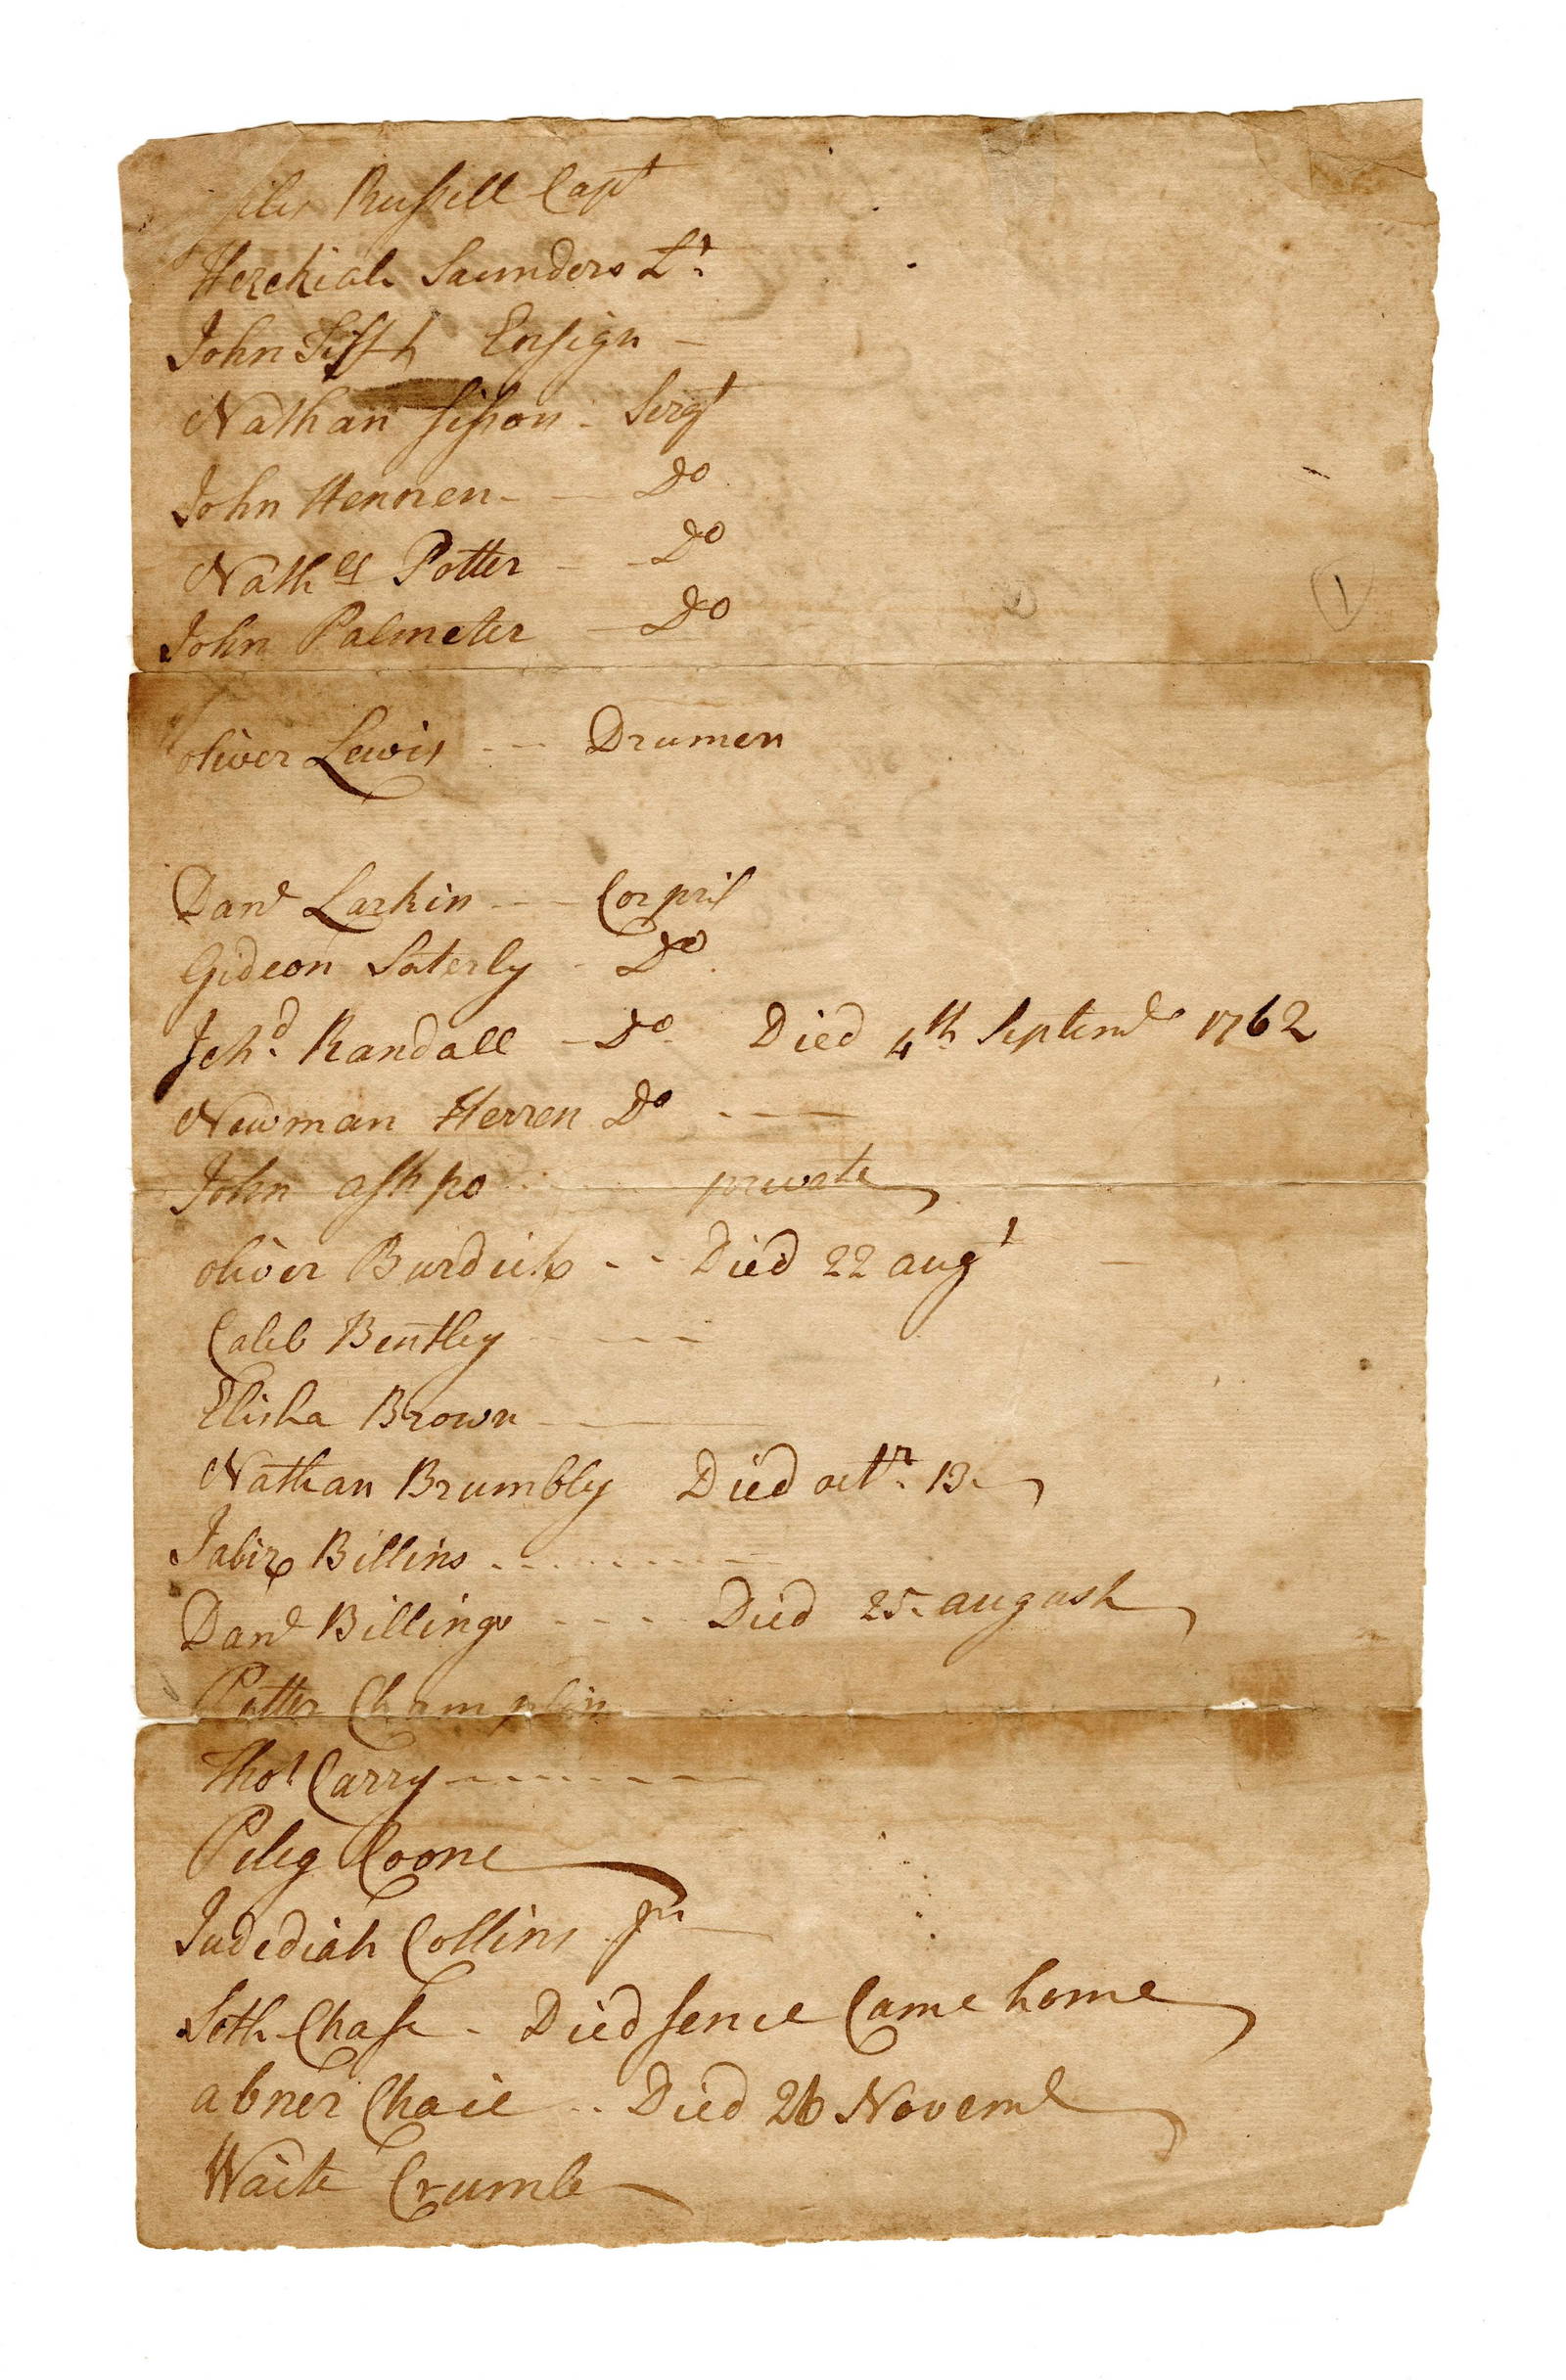 Russell Capt
Hezekiah Saunders Lt.
John Ensign
Nathan sisson - Sergt
John Hennen - Do
Nathel Potter - Do
John Palmeter - Do
1
oliver Lewis - - Drumen
Danl Larkin - - Corpril
Gideon Saterly - Do
Jchd. Randall - Do Died 4th Septeml 1762
Newman Herren Do - - -
John ashpo private
oliver Burdick - - Died 22 augt
Caleb Bentley - - - -
Elisha Brown -
Nathan Brumbly Died octr. 13.
Jabiz Billins - - - - - -
Danl Billings - - - Died 25. august
Potter Champlin
Thos Carry - - - - - - -
Peleg Coone
Judediah Collins Jur
Seth Chase - Died sence Came home
abner Chace - - Died 26 Noveml
Waite Crumb